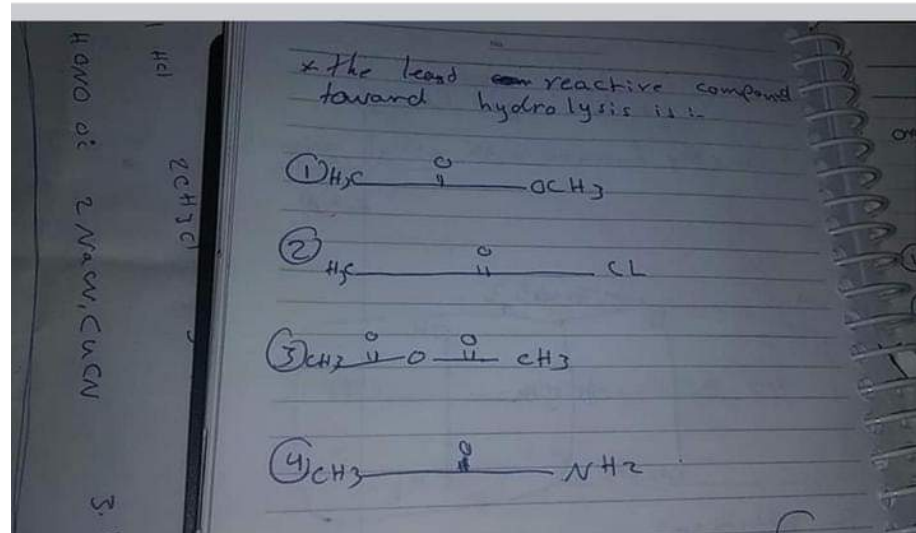 * the leasd reactive compound
toward hydrolysis is:-
① H3C O OCH3
② H3C O CL
③ CH3 O O O CH3
④ CH3 O NH2
HCl
2CH3Cl
HONO oc 2 NaCN, CuCN 3.